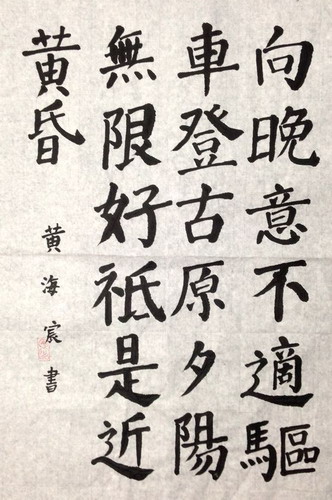 向晚意不適驅
車登古原夕陽
無限好祗是近
黄昏
黄海宸書